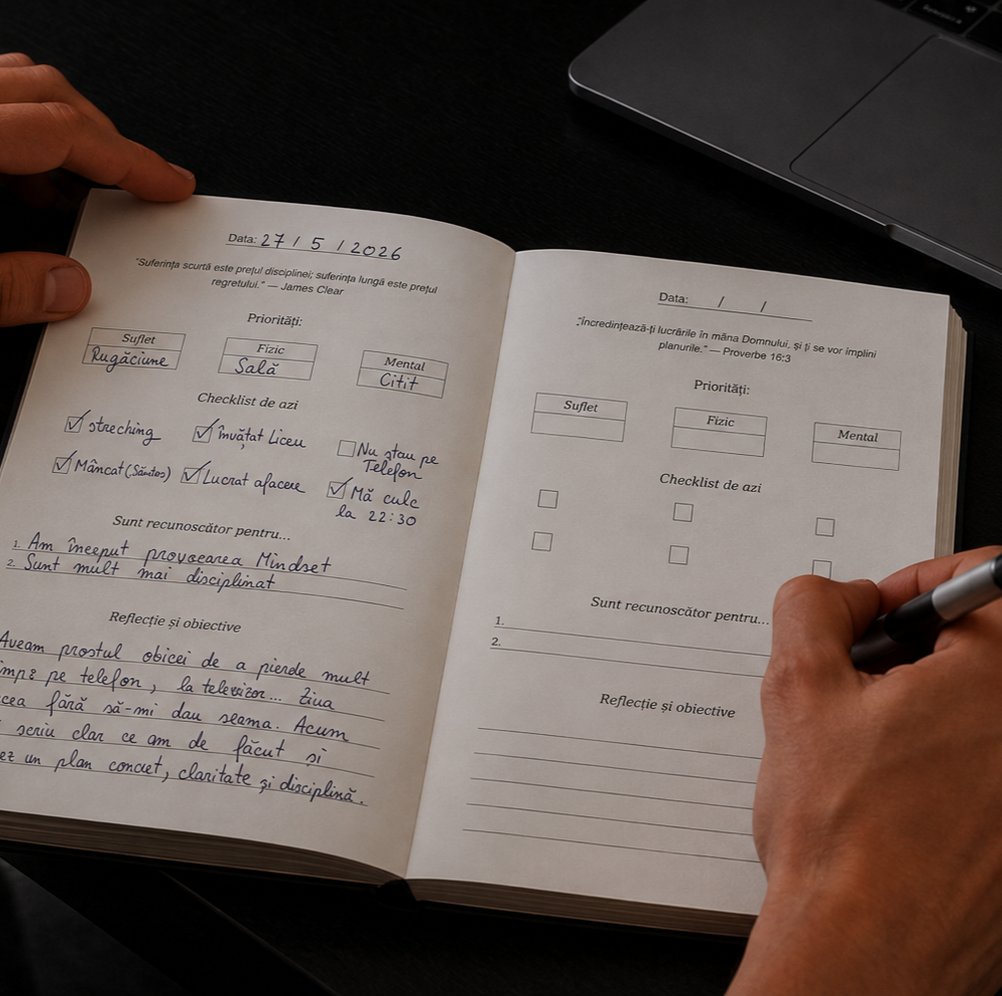 Data: 27 / 5 / 2026
"Suferința scurtă este prețul disciplinei; suferința lungă este prețul
regretului." — James Clear
Priorități:
Suflet
Rugăciune
Fizic
Sală
Mental
Citit
Checklist de azi
streching
învățat Liceu
Nu stau pe
Telefon
Mâncat (Sănătos)
Lucrat afacere
Mă culc
la 22:30
Sunt recunoscător pentru...
1. Am început provocarea Mindset
2. Sunt mult mai disciplinat
Reflecție și obiective
Aveam prostul obicei de a pierde mult
pe telefon, la televizor... Ziua
fără să-mi dau seama. Acum
scriu clar ce am de făcut si
un plan concret, claritate și disciplină.
Data: / /
„Încredințează-ți lucrările în mâna Domnului, și ți se vor împlini
planurile." — Proverbe 16:3
Priorități:
Suflet
Fizic
Mental
Checklist de azi
Sunt recunoscător pentru...
1.
2.
Reflecție și obiective